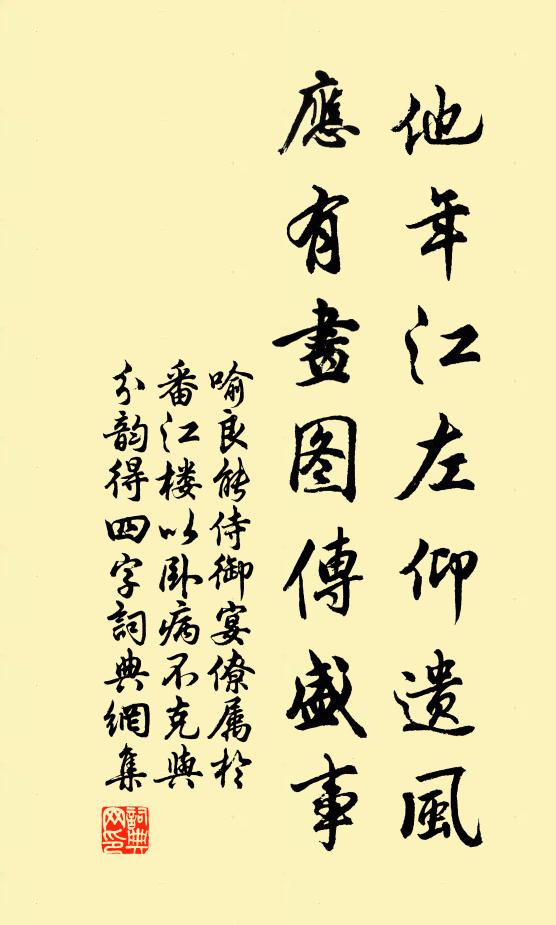 他年江左仰遗風
應有畫图傳盛事
喻良能侍御宴僚属於
番江楼以卧病不克與
分韵得四字詞典網集
詞典网印